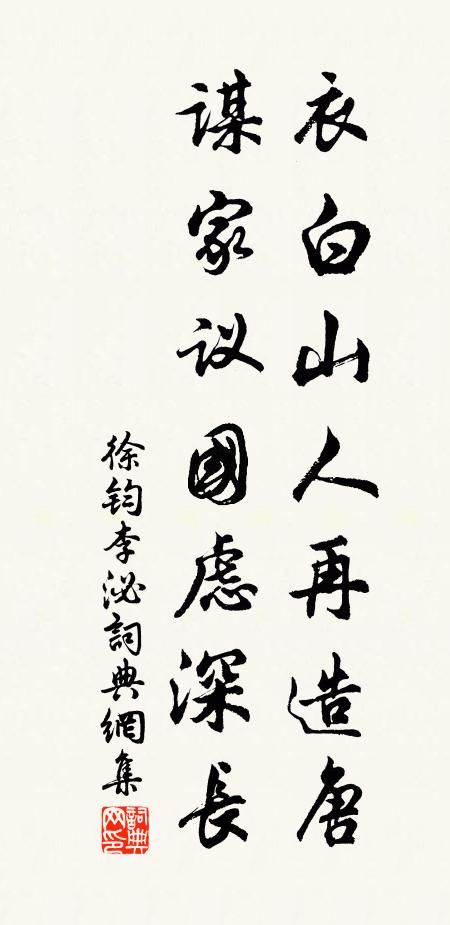 衣白山人再造唐
谋家议國虑深長
徐钧李泌詞典網集
詞典网印